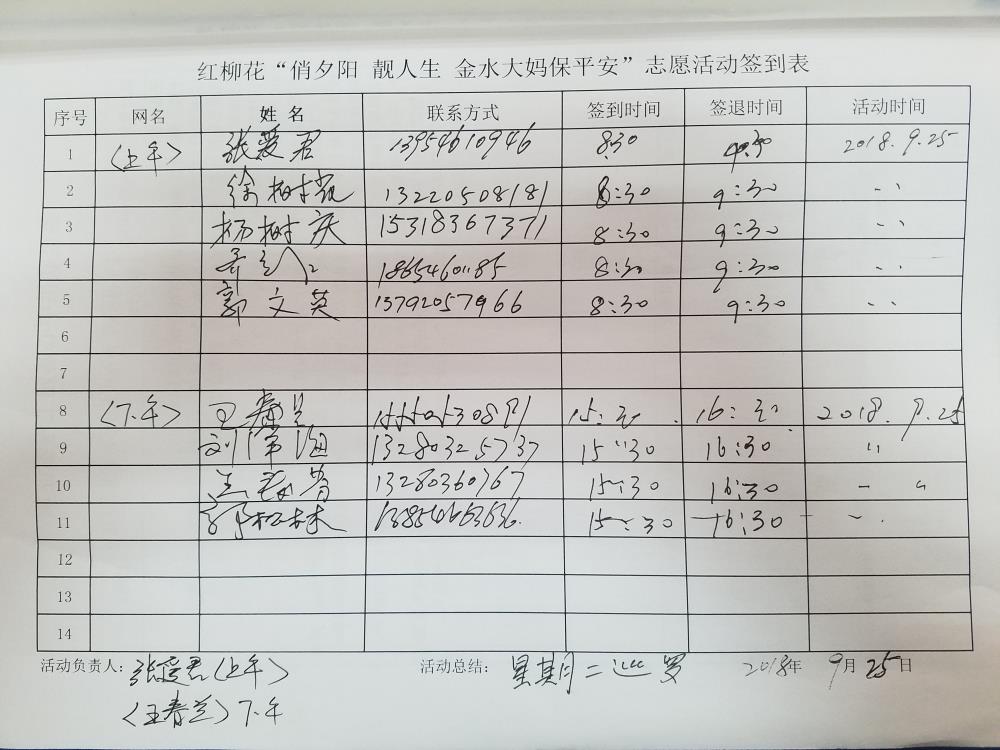 红柳花“俏夕阳 靓人生 金水大妈保平安”志愿活动签到表
序号 网名 姓名 联系方式 签到时间 签退时间 活动时间
1 〈上午〉 张爱君 13954610946 8:30 9:30 2018.9.25
2 徐树凯 13220508181 8:30 9:30
3 杨树庆 15318367371 8:30 9:30
4 8:30 9:30
5 郭文英 13792057966 8:30 9:30
6
7
8 〈下午〉 王春兰 15:30 16:30 2018.9.25
9 刘泽海 13280325737 15:30 16:30 〃
10 13280360767 15:30 16:30
11 郭松林 13854663636 15:30 16:30
12
13
14
活动负责人: 张爱君(上午) 活动总结: 星期二巡罗 2018年 9月25日
〈王春兰〉下午